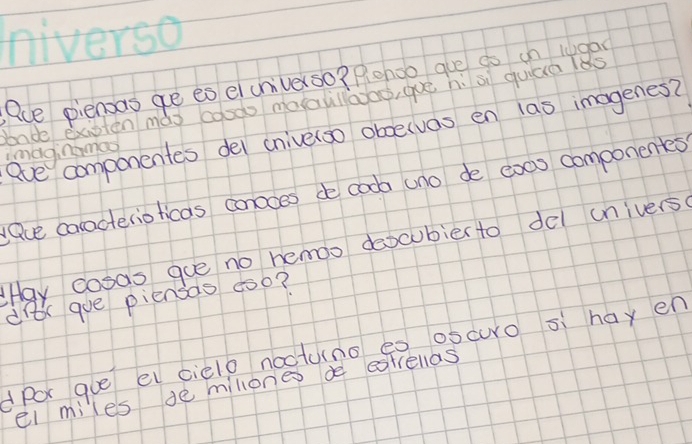 niverso
¿Que piensas qe es el universo? Pienso que es un lugar
donde existen mas cosas maravillosas, que ni si quiera las
imaginamos
¿Que componentes del universo observas en las imagenes?
¿Que caracteristicas conoces de cada uno de esos componentes
¿Hay cosas que no hemos descubierto del universo
que piensas eso?
¿Por que el cielo nocturno es oscuro si hay en
el miles de millones de estrellas